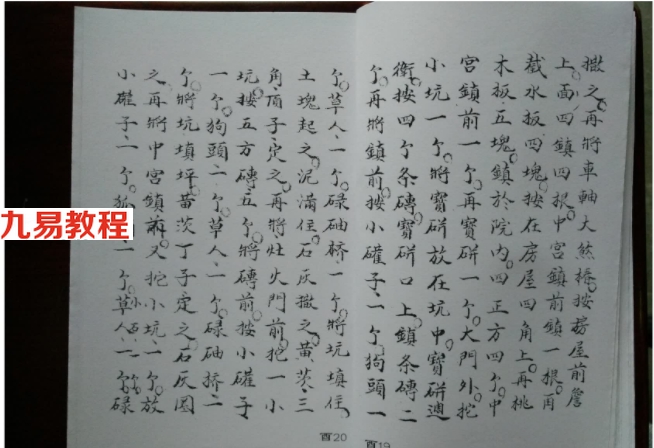 撳之。再將車軸大然椿。按房屋前詹
上面四鎮四根。中宮鎮前鎮一根。再
截水扳四塊。按在房屋四角上。再桃
木扳五塊。鎮於院内。四正方四个。中
宮鎮前一个。再寶硑一个。大門外。挖
小坑一个。將寶硑放在坑中。寶硑迪
衛按四个条磚。寶硑口上。鎮条磚二
个。再將鎮前。按小礶子、一个。狗頭一
个。草人、一个。碌砷挤、一个。將坑填住。
土塊起之。泥满住。石灰撳之。黄茨、三
角、頂子、定之。再將灶火門前。挖一小
坑。按五方磚五个。將磚前。按小礶子
一个。狗頭二个。草人、一个。碌砷挤、二
个。將坑填坪。黄茨丁子定之。石灰圆
之。再將中宮鎮前。又挖小坑、一个。放
小礶子、一个。狐小百一个。草人、一个。碌
九易教程
頁20
頁19